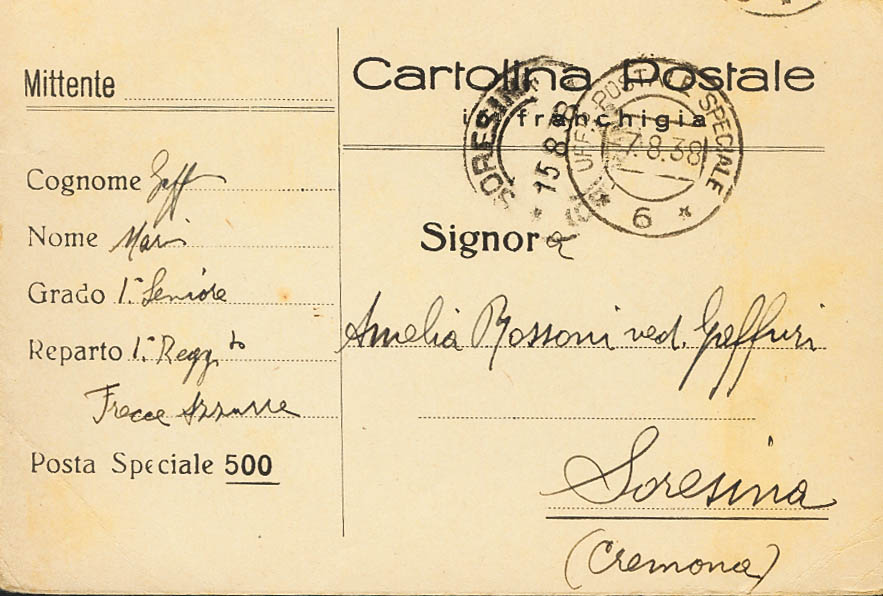 Mittente
Cognome Gaff
Nome Mario
Grado 1º Seniore
Reparto 1º Reggto
Frecce Azzurre
Posta Speciale 500
Cartolina Postale
in franchigia
SORESINA
15.8.38
UFF. POSTALE SPECIALE
7.8.38
* 6 *
Signora
Amelia Rossoni ved. Gaffuri
Soresina
(Cremona)